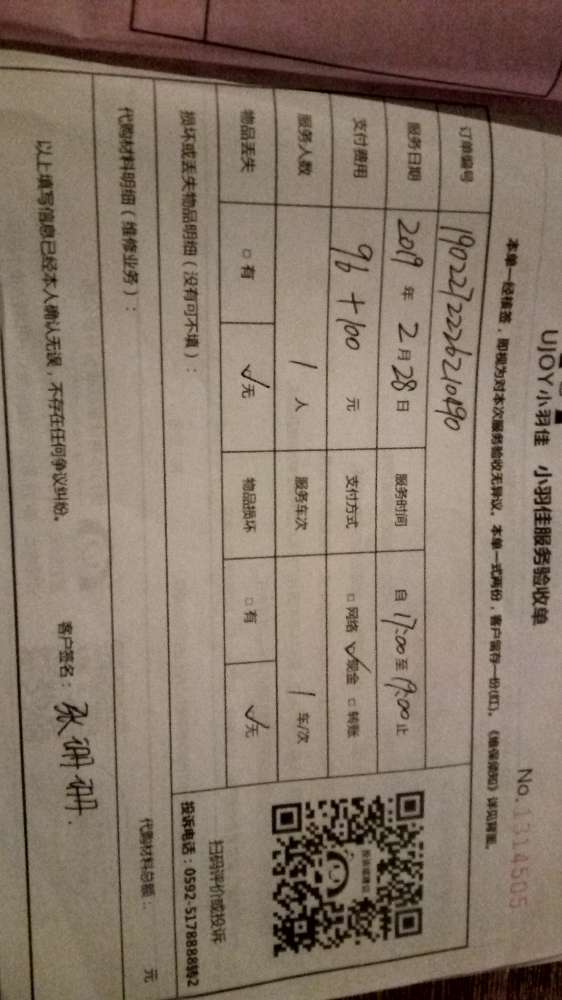 UJOY小羽佳 小羽佳服务验收单
No.1314505
本单一经核签，即视为对本次服务验收无异议。本单一式两份，客户留存一份(红)。《维保须知》详见背面。
订单编号 1902272226210490
服务日期 2019 年 2 月 28 日 服务时间 自 17:00 至 19:00 止
支付费用 96+100 元 支付方式 □ 网络 ✓现金 □ 转账
服务人数 1 人 服务车次 1 车/次
物品丢失 □ 有 ✓无 物品损坏 □ 有 ✓无
损坏或丢失物品明细（没有可不填）：
扫码评价或投诉
投诉电话：0592-5178888转2
代购材料明细（维修业务）：
代购材料总额： 元
以上填写信息已经本人确认无误，不存在任何争议纠纷。
客户签名：张珊珊.